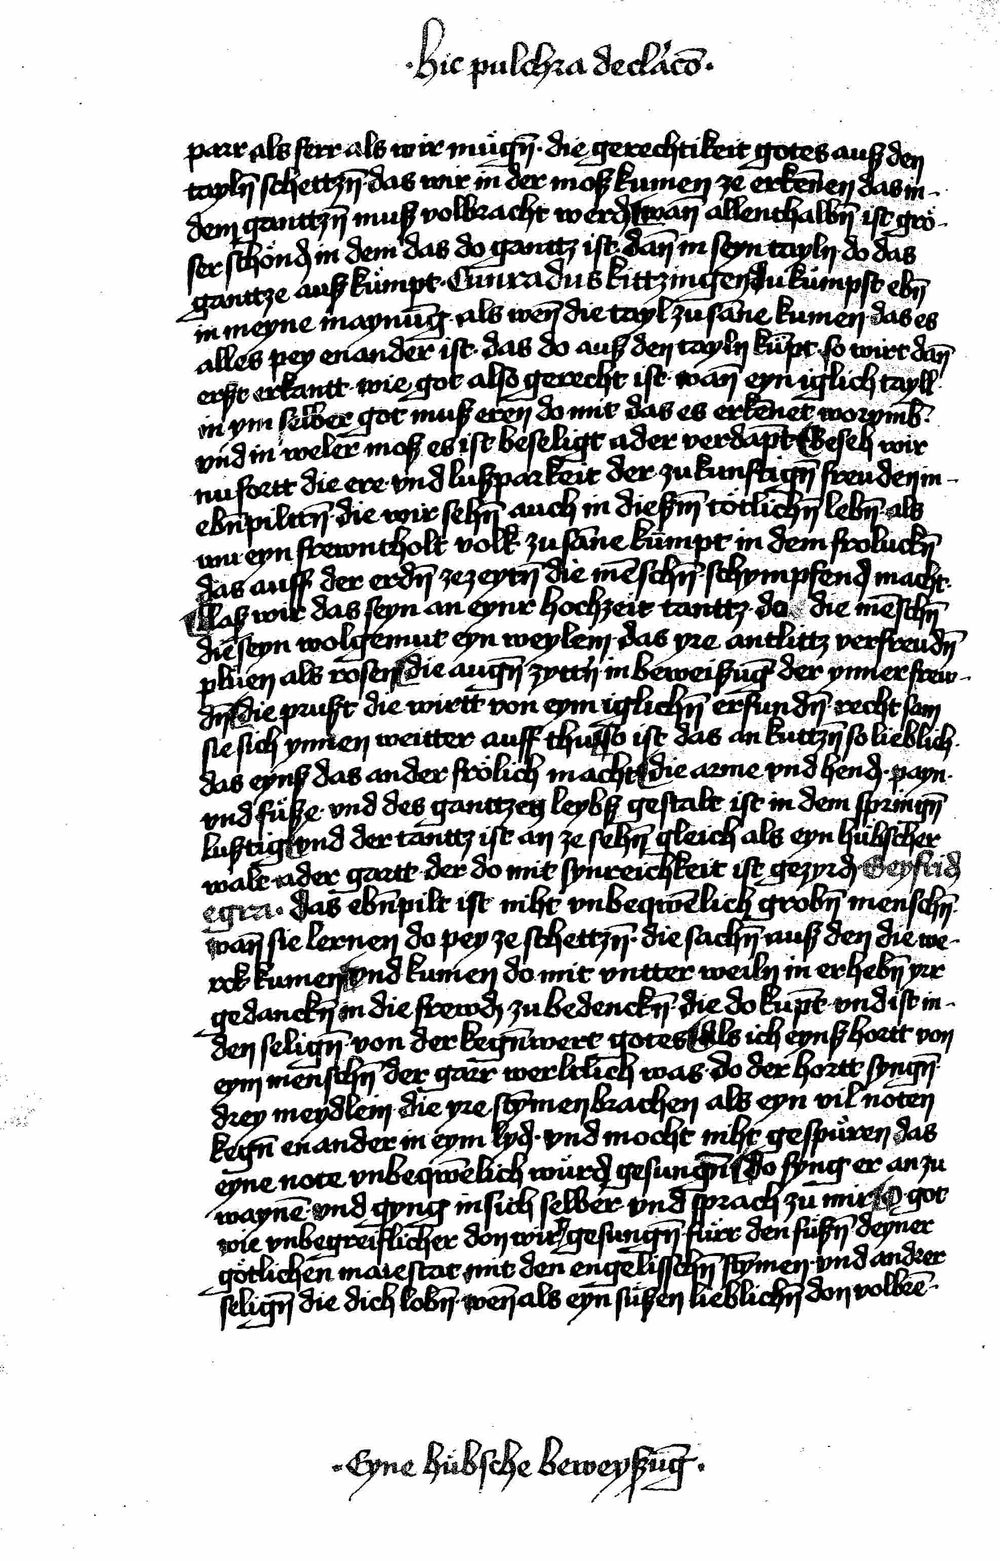 ·hic pulchra declaco̅·
parr als ferr als wir mügn̅· die gerechtikeit gotes auß den
tayln̅ schettzn̅· das wir in der moß kumen ze erken̅en das in-
dem ganttzn̅ muß volbracht werd· wan̅ allenthalbn̅ ist grö-
ser schönd in dem das do ganttz ist· dan̅ in seyn tayln do das
ganttze auß kümpt· Cunradus kittzingen du kümpst ebn̅
in meyne maynu̅g· als wen̅ die tayl zu sa̅ne kumen· das es
alles pey enander ist· das do auß den tayln kü̅pt· so wirt dan̅
erst erkantt· wie got also gerecht ist· wan̅ eyn iglich tayll
in ym selber got muß eren do mit das es erken̅et worymb̅·
vnd in weler moß es ist beseligt ader verdap̅t Geseh wir
nu fortt die ere· vnd lußparkeit der zukunftign̅ freuden in-
ebn̅piltn̅· die wir sehn̅ auch in dießm̅ tötlichn̅ lebn̅· als
wu eyn frewntholt volk· zu sa̅ne kümpt in dem froluckn̅
das auff der erdn̅ ze zeytn̅ die me̅schn̅· schympfend macht·
Laß wir das seyn an eynr hochzeit tanttz· do die me̅schn̅
die seyn wolgemut eyn weylen· das yre antlittz verfreudn̅
plüen als rosen die augn̅ zyttn̅ in beweißug̅ der ynner frew-
dn̅ die prußt die wirtt von eym iglichn̅ erfundn̅· recht sam
sie sich ynnen weitter auff thu So ist das an kuttzn̅ so lieblich·
das eynß das ander frölich macht die arme vnd hend· payn·
vnd füße· vnd des ganttzen leybß gestalt ist in dem springn̅
lustig vnd der tanttz ist an ze sehn̅ gleich als eyn hübscher
walt· ader gartt· der do mit synreichkeit ist gezyrd· Seyfrid
egra· das ebn̅pilt ist niht vnbeqwe̅lich grobn̅ menschn̅·
wan̅ sie lernen do pey ze schettzn̅· die sachn̅ auß den die we-
rck kumen vnd kumen do mit vntter weiln in erhebn̅ yrr
gedanckn̅ in die frewd zu bedenckn̅· die do kup̅t· vnd ist in-
den selign̅· von der kegn̅wert gotes Als ich eynß hortt von
eym menschn̅ der garr werltlich was· do der hortt syngn̅·
drey meydlein· die yre sty̅men brachen als eyn vil noten
kegn̅ enander in eym lyd· vnd mocht niht gespüren das
eyne note vnbeqwe̅lich würd gesungn̅ do fyng er an zu
wayne̅· vnd gyng in sich selber· vnd sprach zu mir O got
wie vnbegreiflicher don wirt gesungn̅· fürr den füßn̅ deyner
götlichen maiestat· mit den engelisschn̅ sty̅men· vnd andrer
selign̅ die dich lobn̅· wen̅ als eyn süßen lieblichn̅ don volbre̅·
·Eyne hübsche beweyßu̅g·